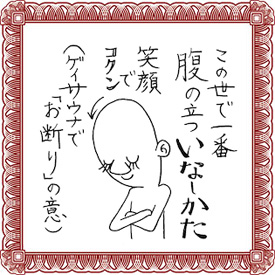 この世で一番
腹の立ついなしかた
笑顔で
コクン
（ゲイサウナで
「お断り」の意）